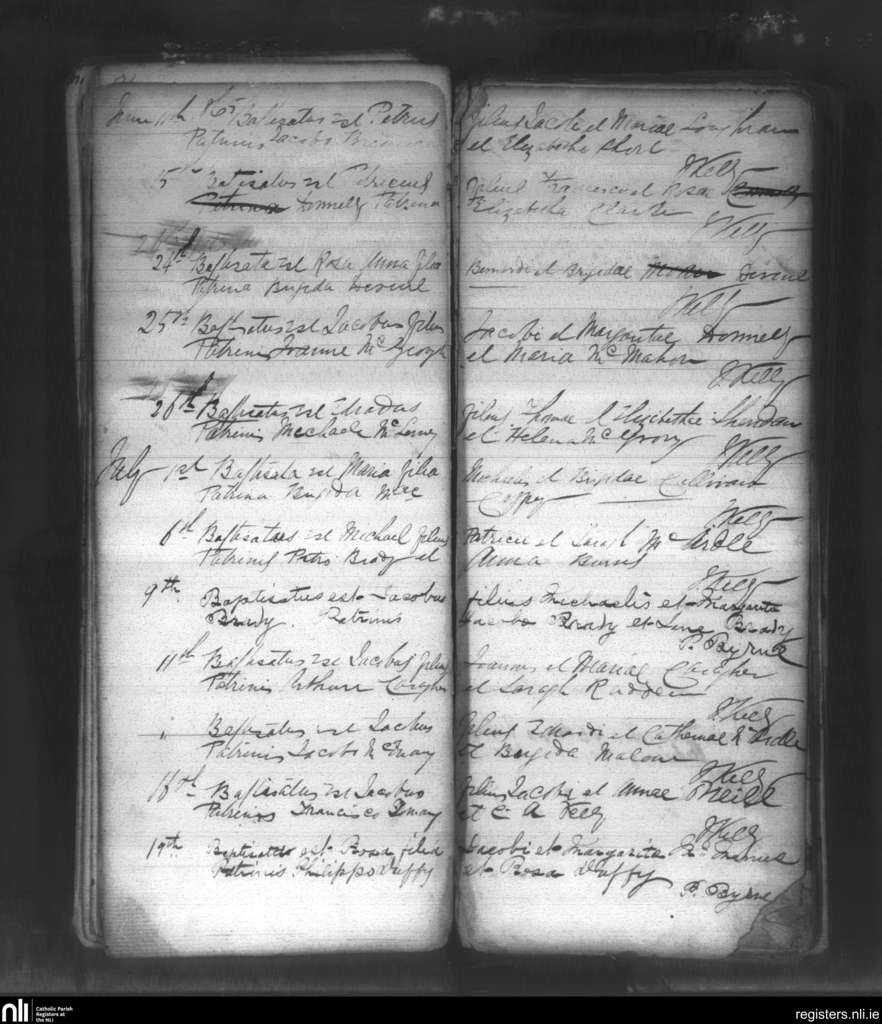 June 11th 1865 Baptisatus est Petrus filius Jacobi et Mariae Loughran
Patrinis Jacobo et Elizabetha Short
J Kelly
15th Baptisatus est Patricius filius Francisci et Rosa
Donnelly Patrina Elizabetha Clarke
J Kelly
24th Baptisata est Rosa Anna filia Bernardi et Brigidae Devine
Patrina Brigida Devine
J Kelly
25th Baptisatus est Jacobus filius Jacobi et Margaritae Donnelly
Patrinis Joanne Mc Geogh et Maria Mc Mahon
J Kelly
26th Baptisatus est filius Thomae et Elizabethae Sheridan
Patrinis Michaele et Helena Mc
J Kelly
July 1st Baptisata est Maria filia Nicholas et Brigidae Callivan
Patrina Brigida Mac Caffrey
J Kelly
6th Baptisatus est Michael filius Patricii et Sarah Mc Ardle
Patrinis Petro Brady et Anna Burns
J Kelly
9th Baptisatus est Jacobus filius Michaelis et Margarita
Brady. Patrinis Jacobo Brady et Jane Brady
P. Byrne
11th Baptisatus est Jacobus filius Joannis et Mariae Caragher
Patrinis Arthuro Caragher et Sarah Rudden
J Kelly
" Baptisatus est Jacobus filius Edwardi et Catherinae Mc Ardle
Patrinis Jacobo et Brigida Malone
J Kelly
18th Baptisatus est Jacobus filius Jacobi et Annae Neill
Patrinis Francisco et C A Kelly
J Kelly
19th Baptisata est Rosa filia Jacobi et Margarita
Patrinis Philippo Duffy et Rosa Duffy
P. Byrne
nli Catholic Parish
Registers at
the NLI
registers.nli.ie